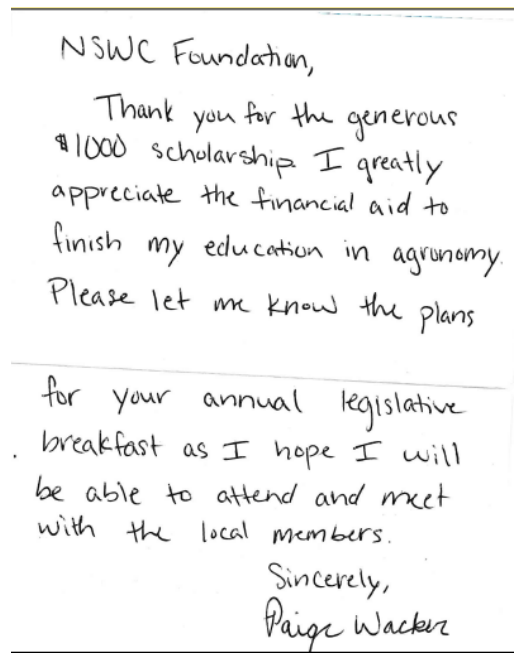 NSWC Foundation,
Thank you for the generous
$1000 scholarship. I greatly
appreciate the financial aid to
finish my education in agronomy.
Please let me know the plans
for your annual legislative
breakfast as I hope I will
be able to attend and meet
with the local members.
Sincerely,
Paige Wacker